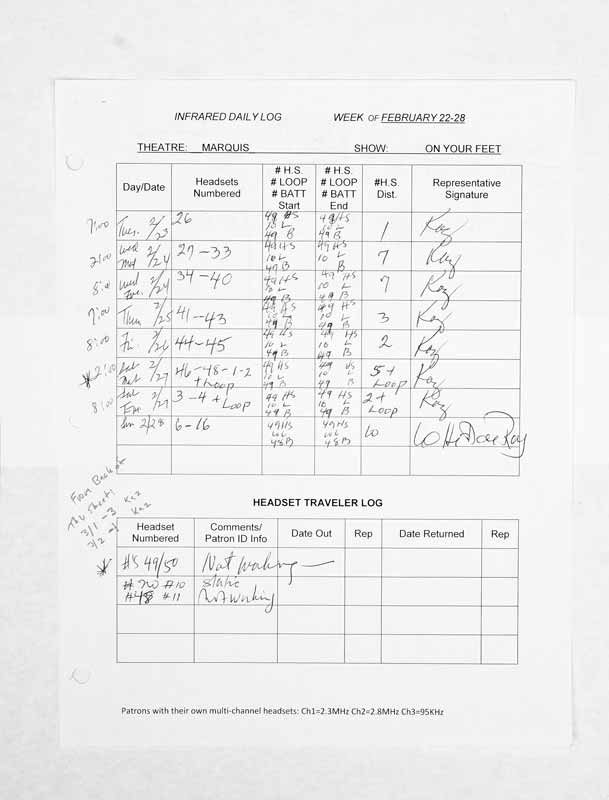 INFRARED DAILY LOG WEEK OF FEBRUARY 22-28
THEATRE: MARQUIS SHOW: ON YOUR FEET
Day/Date Headsets Numbered # H.S. # LOOP # BATT Start # H.S. # LOOP # BATT End #H.S. Dist. Representative Signature
7:00 Tues. 2/23 26 49 HS 10 L 49 B 49 HS 10 L 49 B 1 Kaz
2:00 Wed Mat 2/24 27-33 49 HS 10 L 49 B 49 HS 10 L B 7 Kaz
8:00 Wed Eve. 2/24 34-40 49 HS 10 L 49 B 49 HS 10 L 49 B 7 Kaz
7:00 Thu 2/25 41-43 49 HS 10 L 49 B 49 HS 10 L 49 B 3 Kaz
8:00 Fri. 2/26 44-45 49 HS 10 L 49 B 49 HS 10 L 49 B 2 Kaz
* 2:00 Sat Mat 2/27 46-48-1-2 + Loop 49 HS 10 L 49 B 49 HS 10 L 49 B 5+ Loop Kaz
8:00 Sat Eve 2/27 3-4 + Loop 49 HS 10 L 49 B 49 HS 10 L 49 B 2+ Loop Kaz
Sun 2/28 6-16 49 HS 10 L 48 B 49 HS 10 L 48 B 10
From Back of
This Sheet!
3/1 - 3 Kaz
3/2 - 1 Kaz
HEADSET TRAVELER LOG
Headset Numbered Comments/ Patron ID Info Date Out Rep Date Returned Rep
* #'s 49/50 Not working
# 20 #10 static
#48 #11 Not working
Patrons with their own multi-channel headsets: Ch1=2.3MHz Ch2=2.8MHz Ch3=95KHz